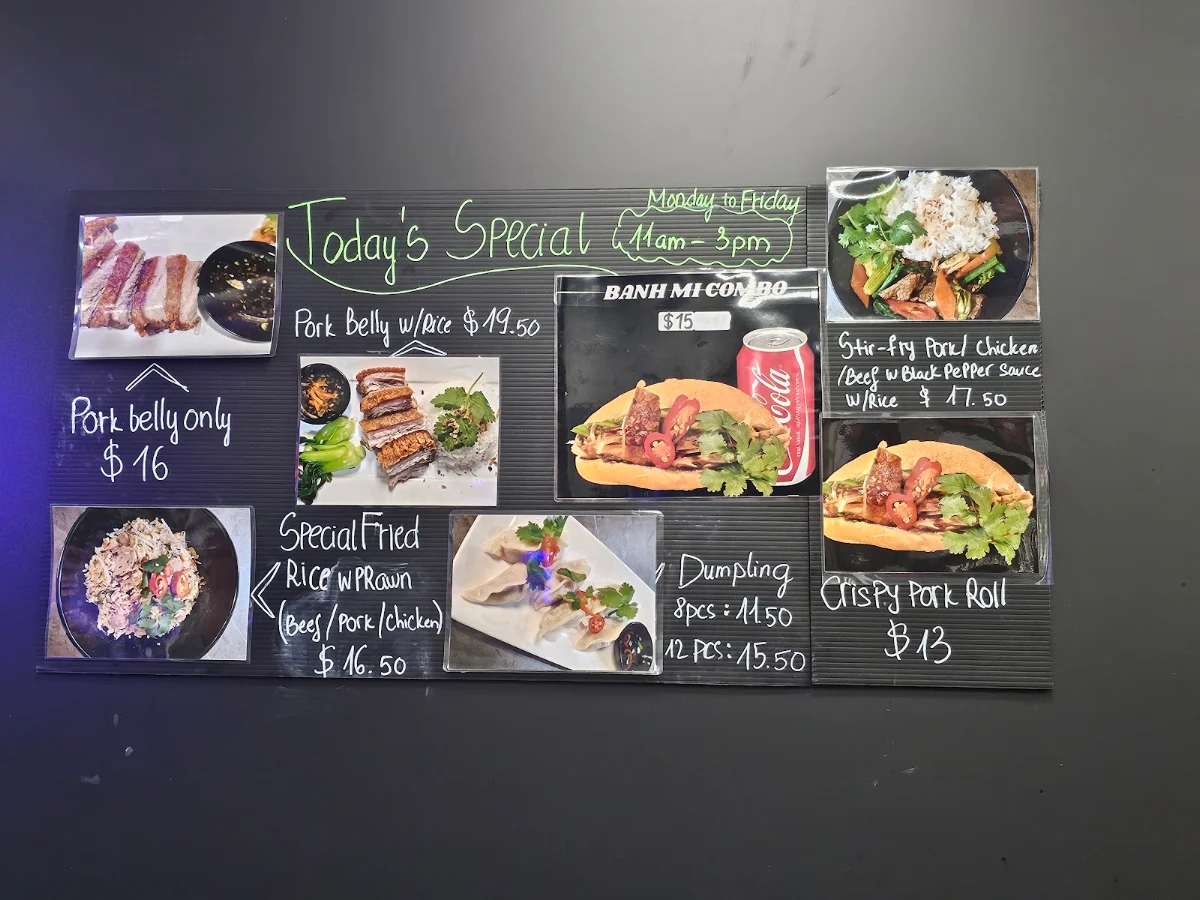 Today's Special
Monday to Friday
11am - 3pm
Pork Belly w/Rice $19.50
BANH MI COMBO
$15
Cola
Stir-fry Pork/ chicken
/Beef w Black Pepper Sauce
w/Rice $ 17.50
Pork belly only
$16
Special Fried
Rice w PRawn
(Beef/Pork/chicken)
$16.50
Dumpling
8pcs: 11.50
12 pcs: 15.50
Crispy Pork Roll
$13